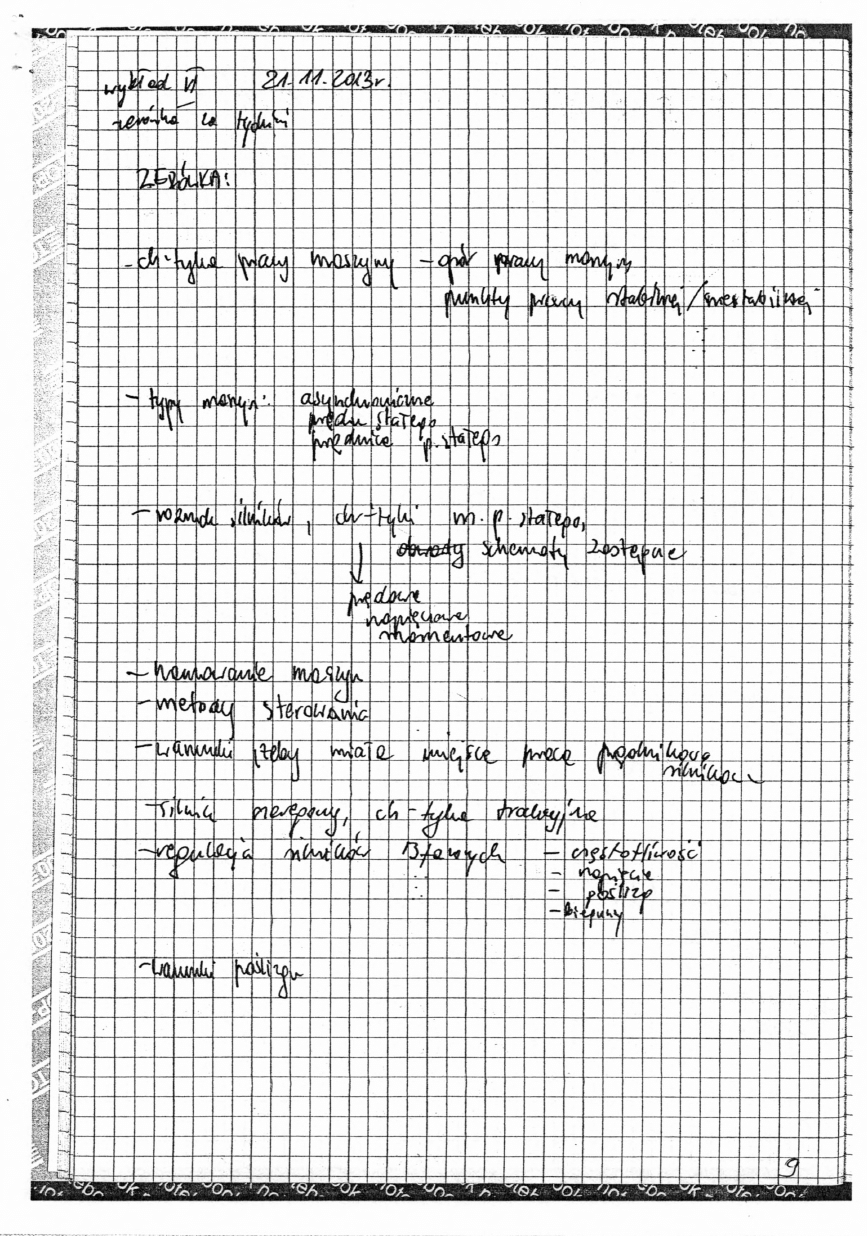 wykład VI 21.11.2013r.
zerówka za tydzień
ZERÓWKA:
- ch-tyka pracy maszyny - opór pracy maszyny
punkty pracy stabilnej/niestabilnej
- typy maszyn: asynchroniczne
prądu stałego
prądnice p. stałego
- rozruch silników, ch-tyki m. p. stałego,
schematy zastępcze
prądowe
napięciowe
momentowe
- hamowanie maszyn
- metody sterowania
- warunki żeby miała miejsce praca prądnikowa
silnikowa
- silnik szeregowy, ch-tyka trakcyjna
- regulacja silników 3fazowych - częstotliwość
- napięcie
- poślizg
- bieguny
- warunki poślizgu
9